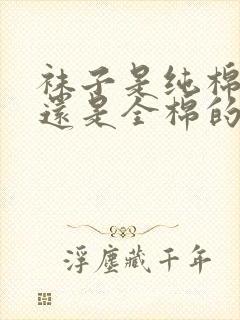 袜子是纯棉
還是全棉的
浮塵藏千年